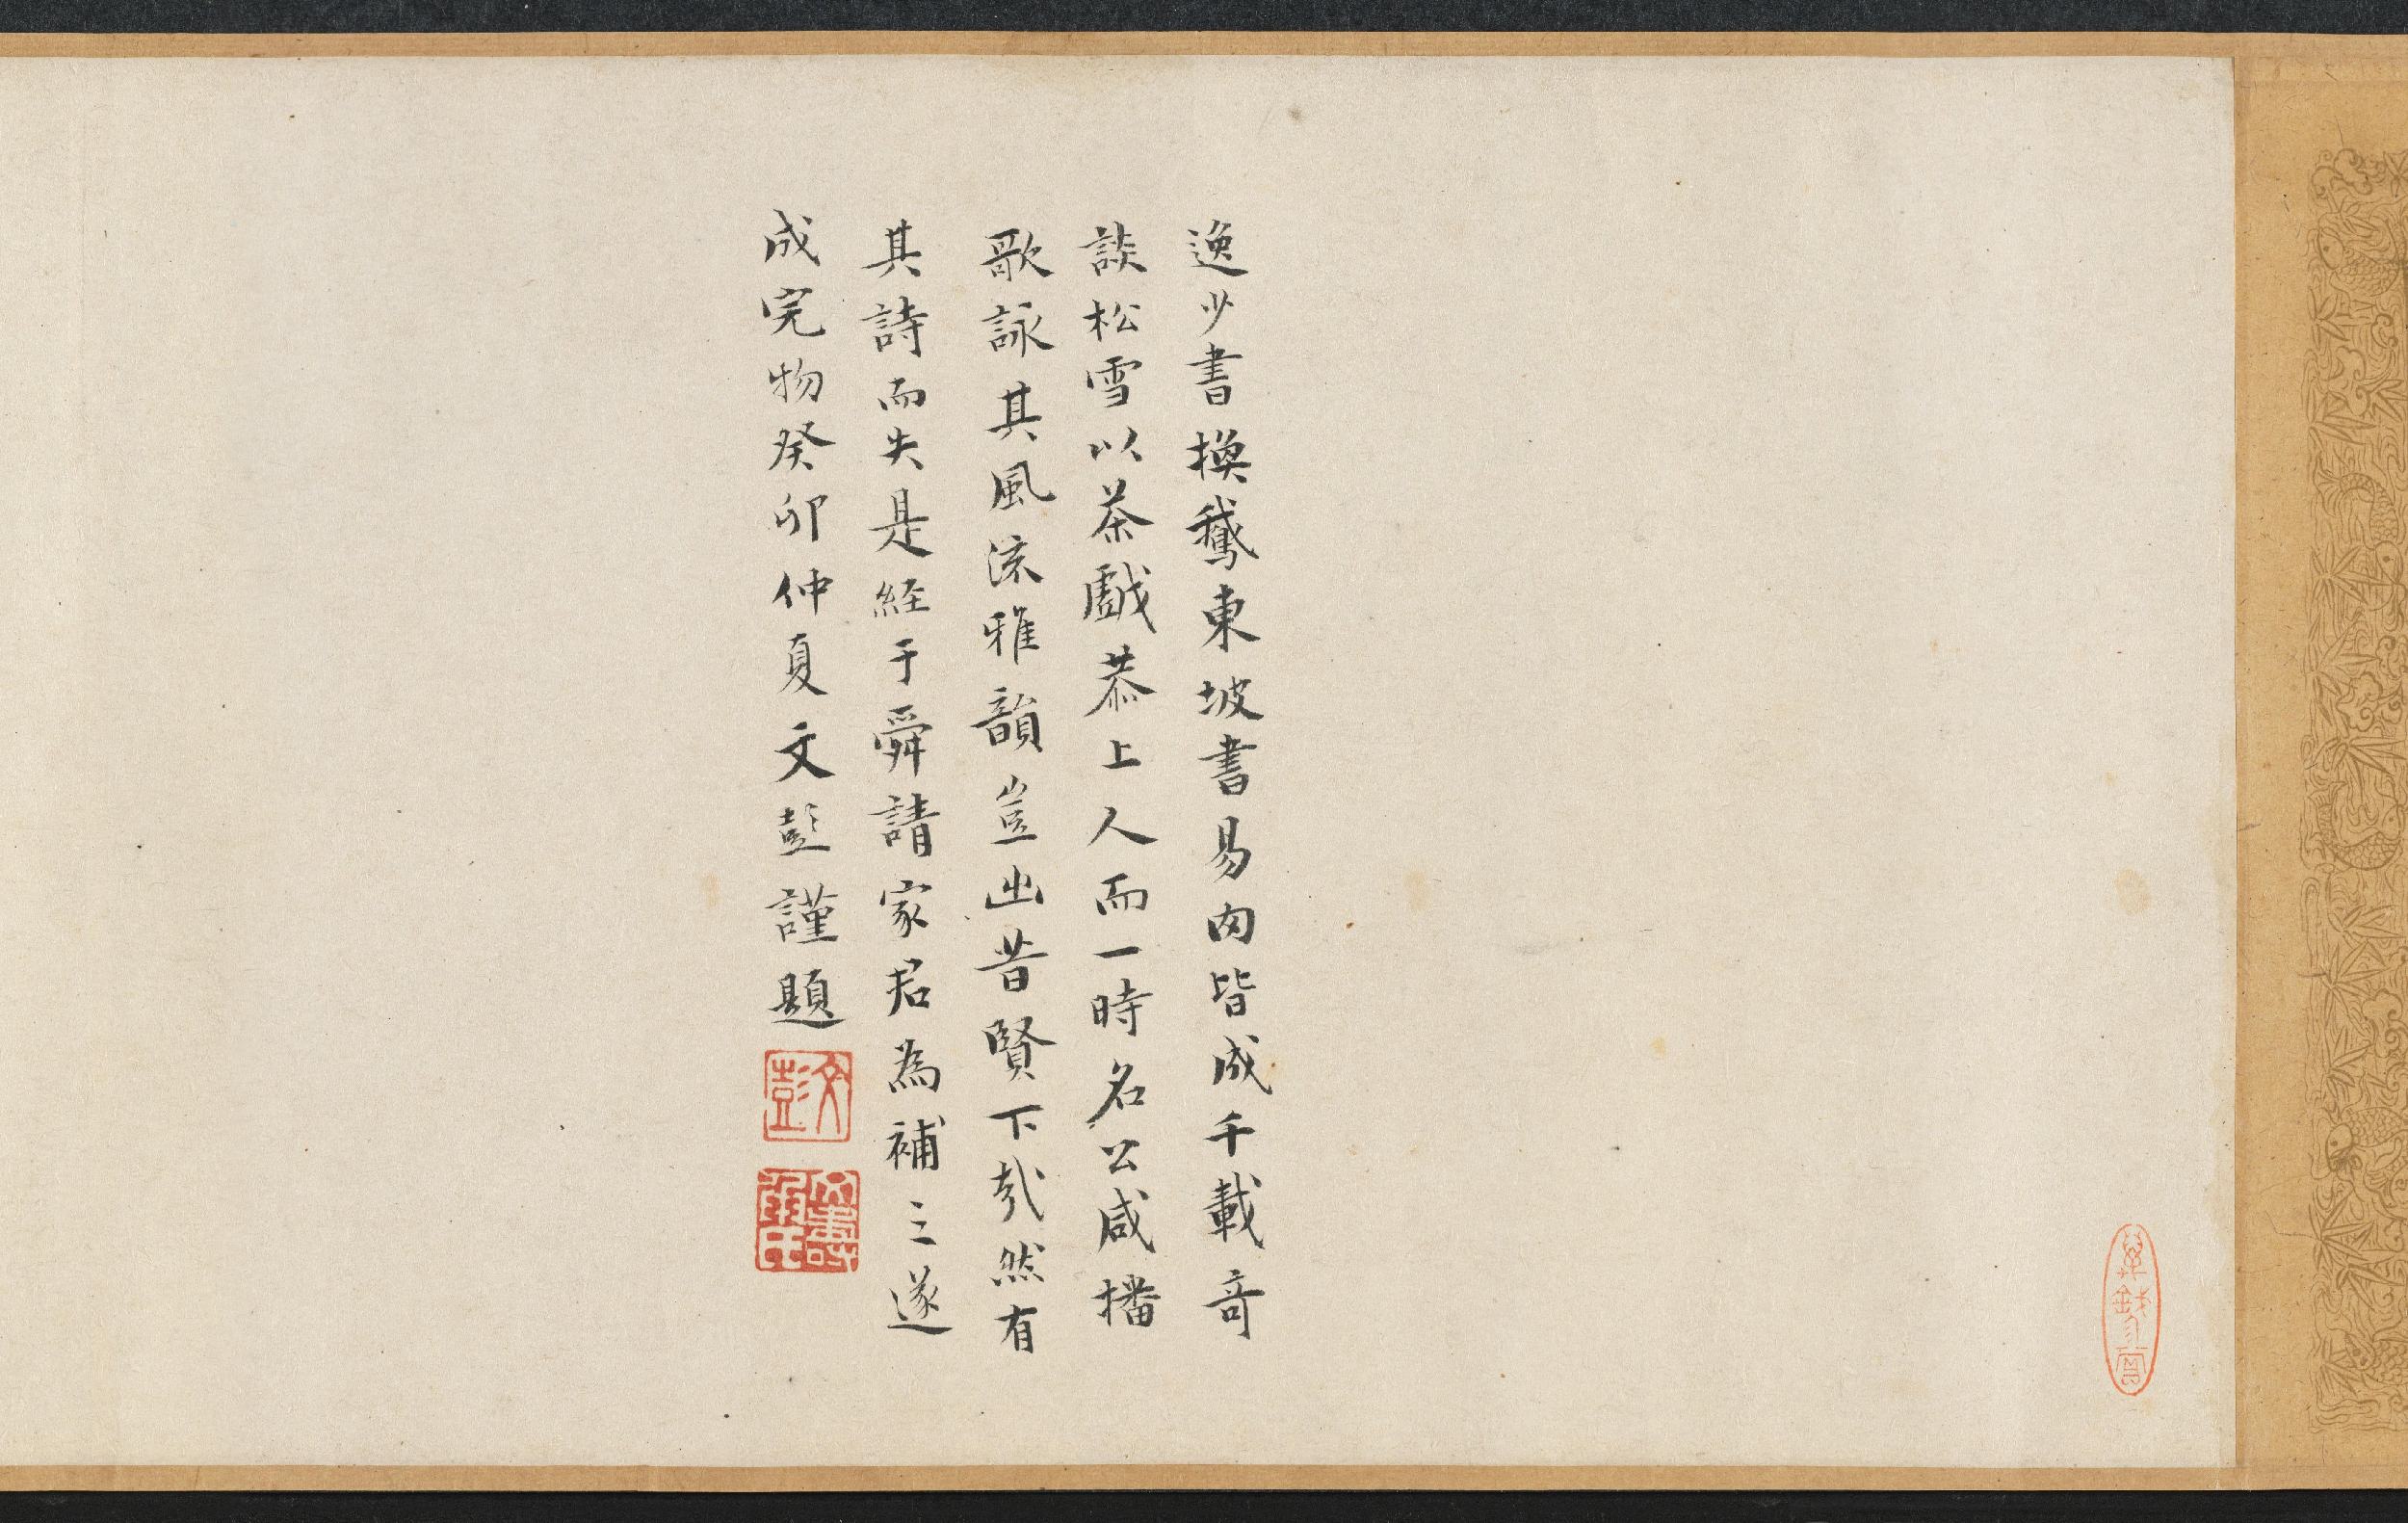 逸少書換鵞東坡書易肉皆成千載奇
談松雪以茶戲恭上人而一時名公咸播
歌詠其風流雅韻豈出昔賢下㢤然有
其詩而失是経于舜請家君為補之遂
成完物癸卯仲夏文彭謹題
文彭
文壽承氏